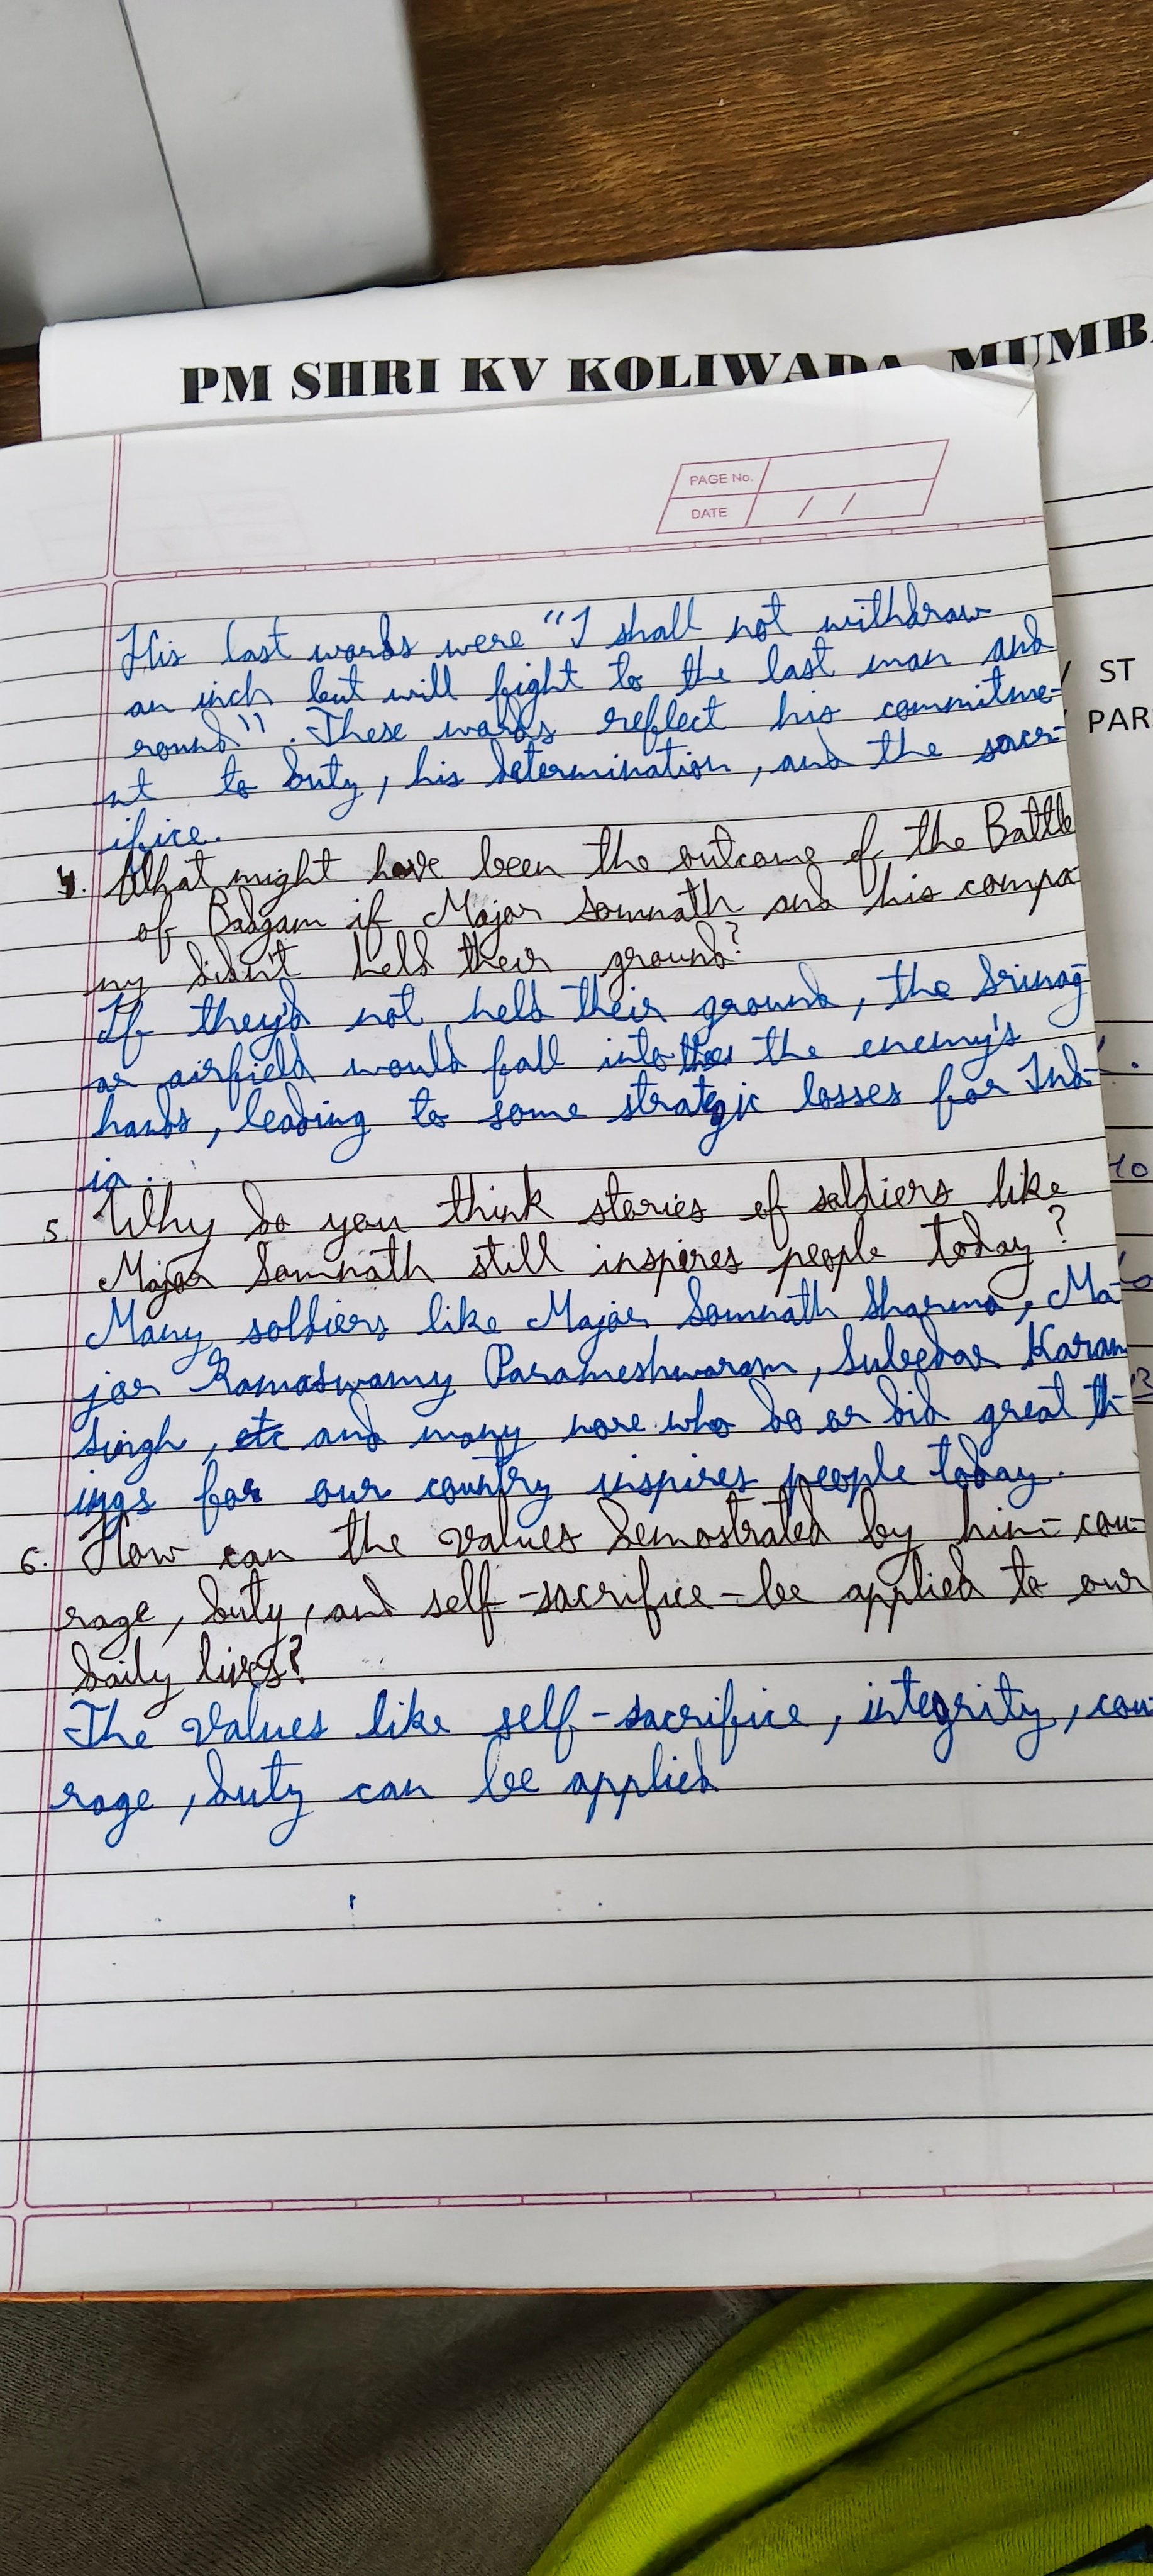 PM SHRI KV KOLIWADA, MUMBA
PAGE No.
DATE / /
ST
PAR
His last words were "I shall not withdraw
an inch but will fight to the last man and
round". These words reflect his commitme-
nt to duty, his determination, and the sacr-
ifice.
4. What might have been the outcome of the Battle
of Badgam if Major Somnath and his compa
ny didn't held their ground?
If they'd not held their ground, the Srinag-
ar airfield would fall into the enemy's
hands, leading to some strategic losses for Ind-
ia.
5. Why do you think stories of soldiers like
Major Somnath still inspires people today?
Many soldiers like Major Somnath Sharma, Ma-
jor Ramaswamy Parameshwaram, Subedar Karam
Singh, etc and many more who do or did great th-
ings for our country inspires people today.
6. How can the values demostrated by him-cou-
rage, duty, and self-sacrifice-be applied to our
daily lives?
The values like self-sacrifice, integrity, cou-
rage, duty can be applied